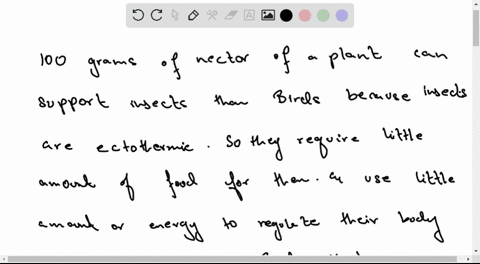 100 grams of nector of a plant can
support insects than Birds because insects
are ectothermic. So they require little
amount of food for them. & use little
amount or energy to regulate their body